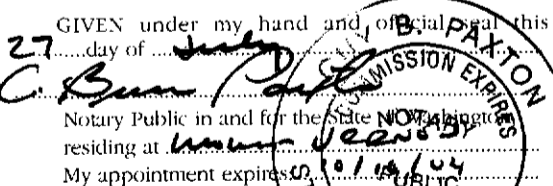 GIVEN under my hand and official seal this
27 day of July
C. B Paxton
Notary Public in and for the State of Washington
residing at Mount Vernon
My appointment expires 10/ /04
B. PAXTON
COMMISSION EXPIRES
NOTARY
PUBLIC